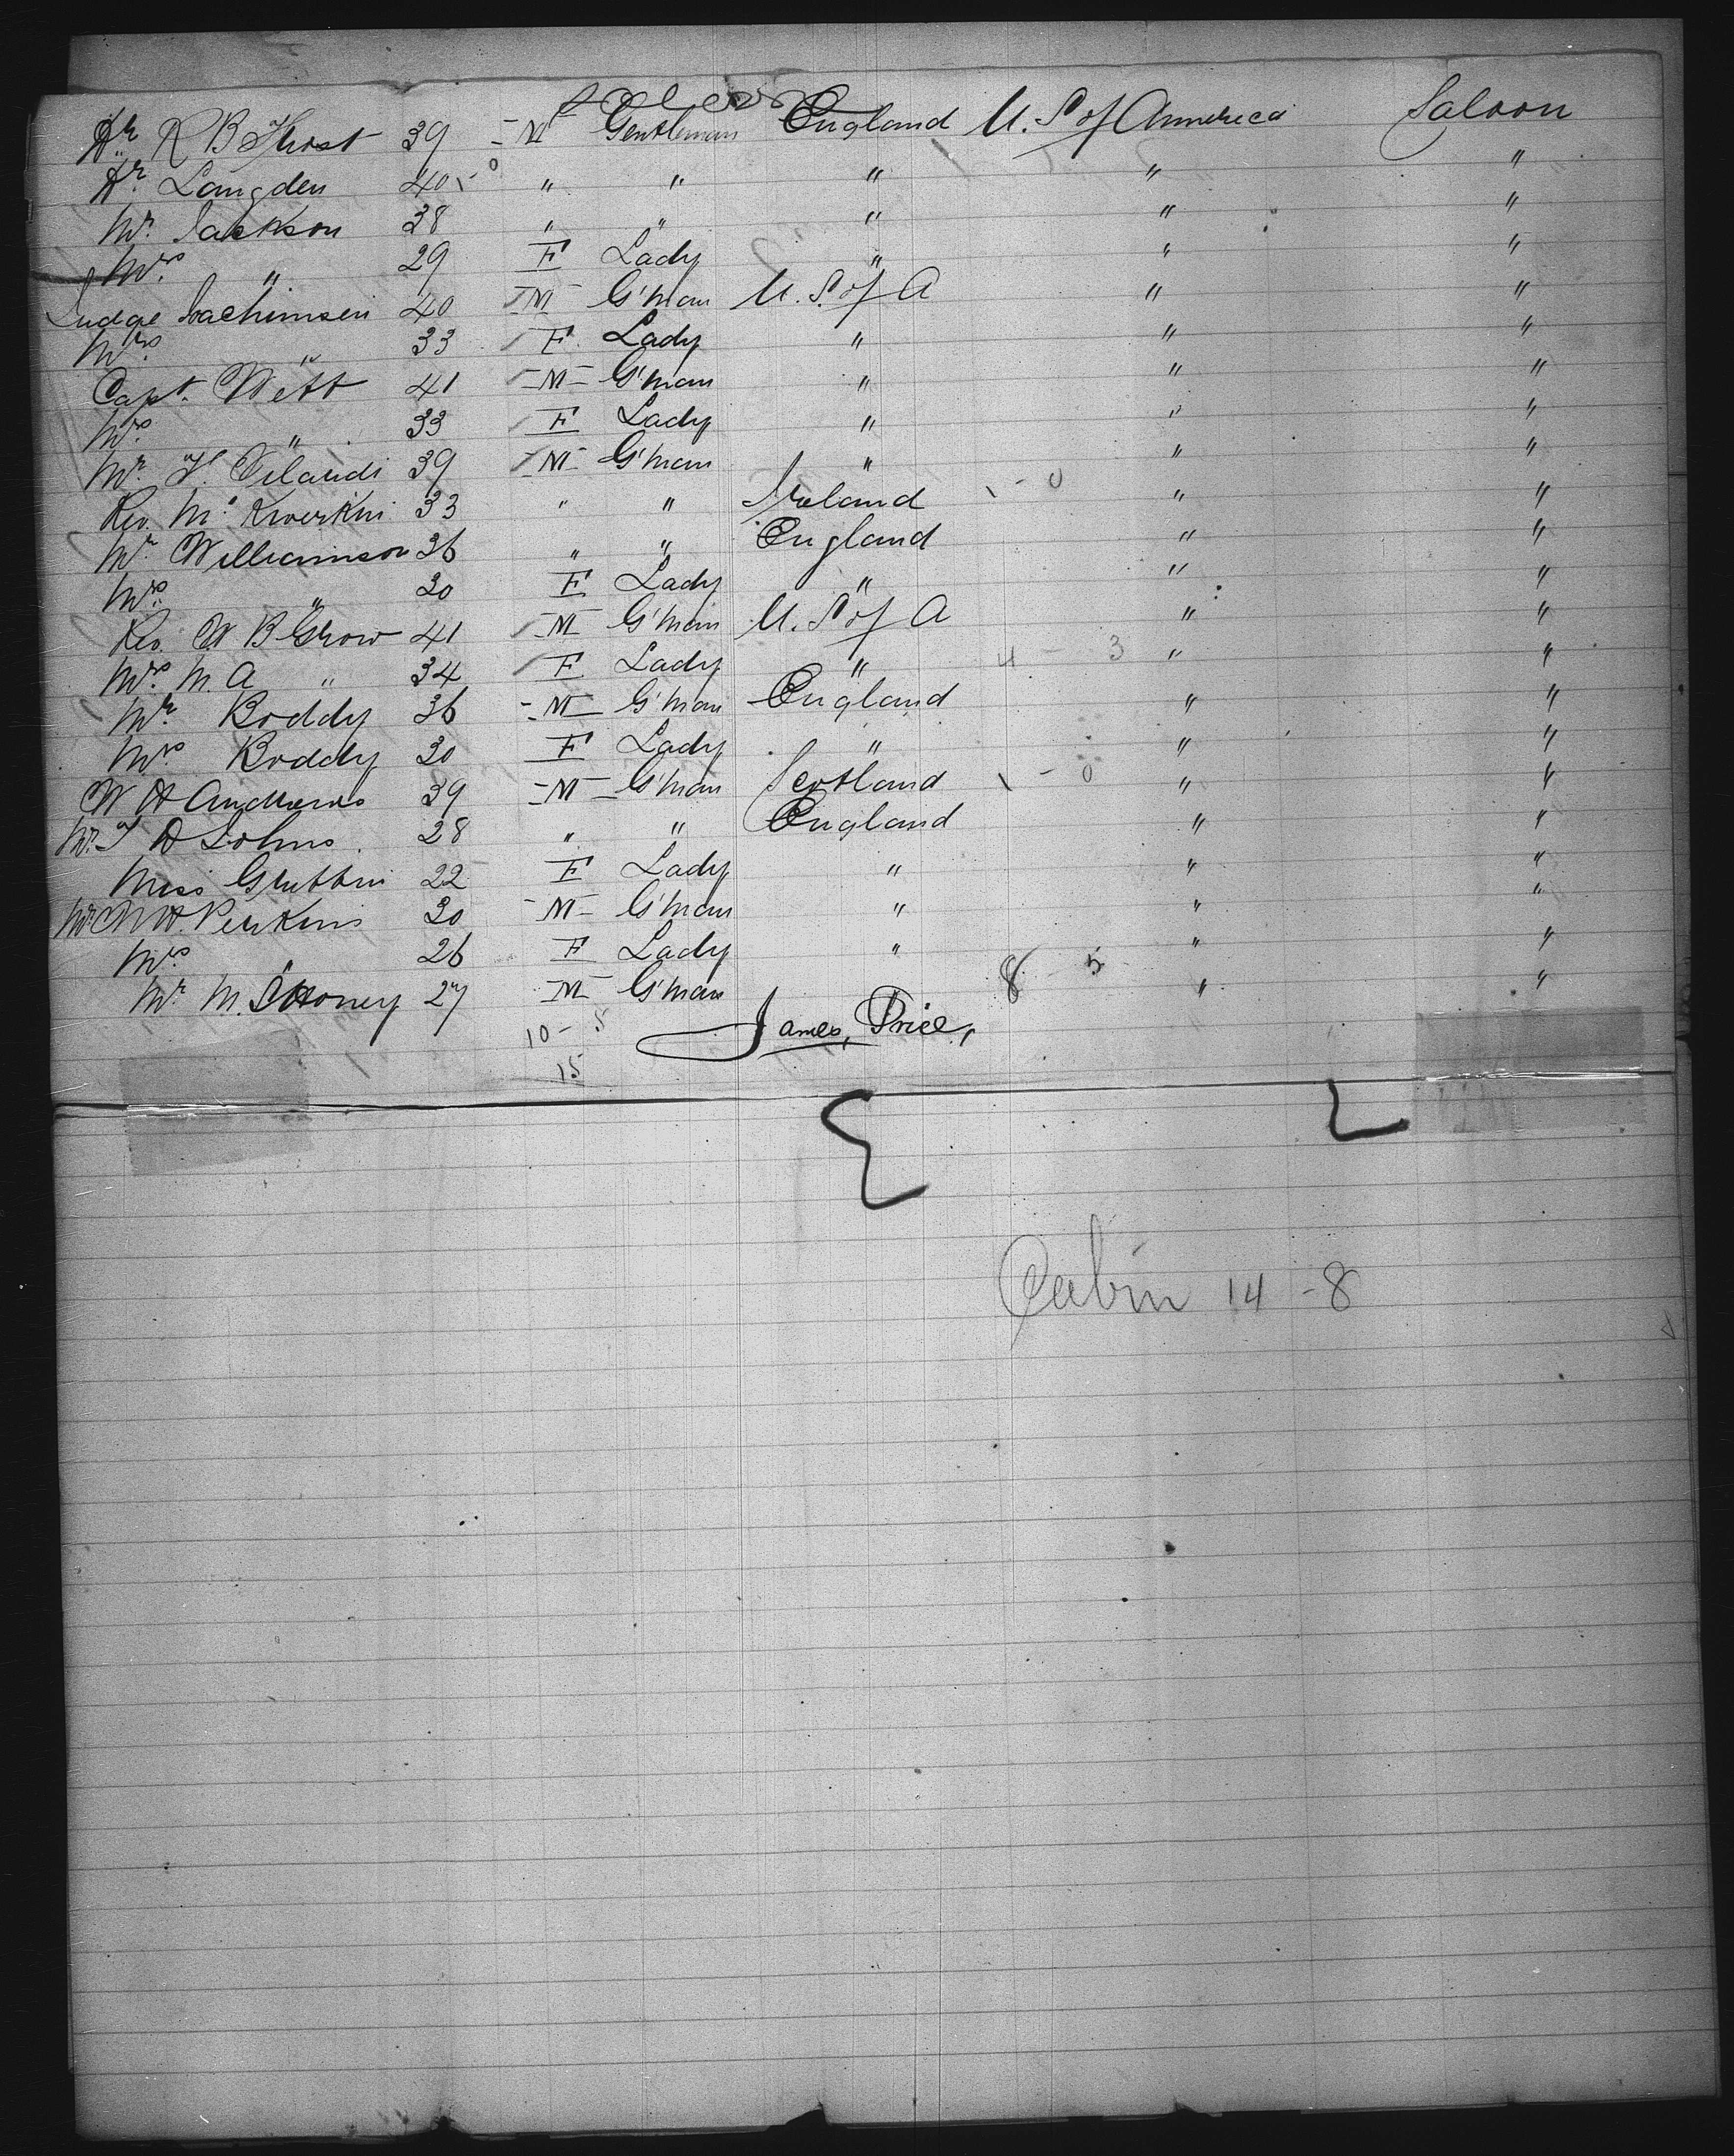 Dr R B Frost 39 - M Gentleman England U. S of America Saloon
Dr Langden 40 " " " " "
Mr Jackson 38 " " " " "
Mrs " 29 F Lady " " "
Judge Joachimsen 40 - M - G'man U. S. of A " "
Mrs " 33 F. Lady " " "
Capt. Webb 41 - M - G'man " " "
Mrs " 33 F Lady " " "
Mr 39 - M - G'man " " "
Rev. 33 " " Ireland 1 - 0 " "
Mr Williamson 36 " " England " "
Mrs " 30 F Lady " " "
Rev. W B Grow 41 - M G'man U. S of A " "
Mrs M. A " 34 F Lady " 4 - 3 " "
Mr Boddy 36 - M - G'man England " "
Mrs Boddy 30 F Lady " " "
W H Andrews 39 - M - G'man Scotland 1 - 0 " "
Mr T D Johns. 28 " " England " "
Miss 22 F Lady " " "
Mr W H. Perkins 30 - M - G'man " " "
Mrs " 26 F Lady " " "
Mr M. 27 M G'man 8 - 5 " "
10 - 5 James, Price,
15
Cabin 14 - 8